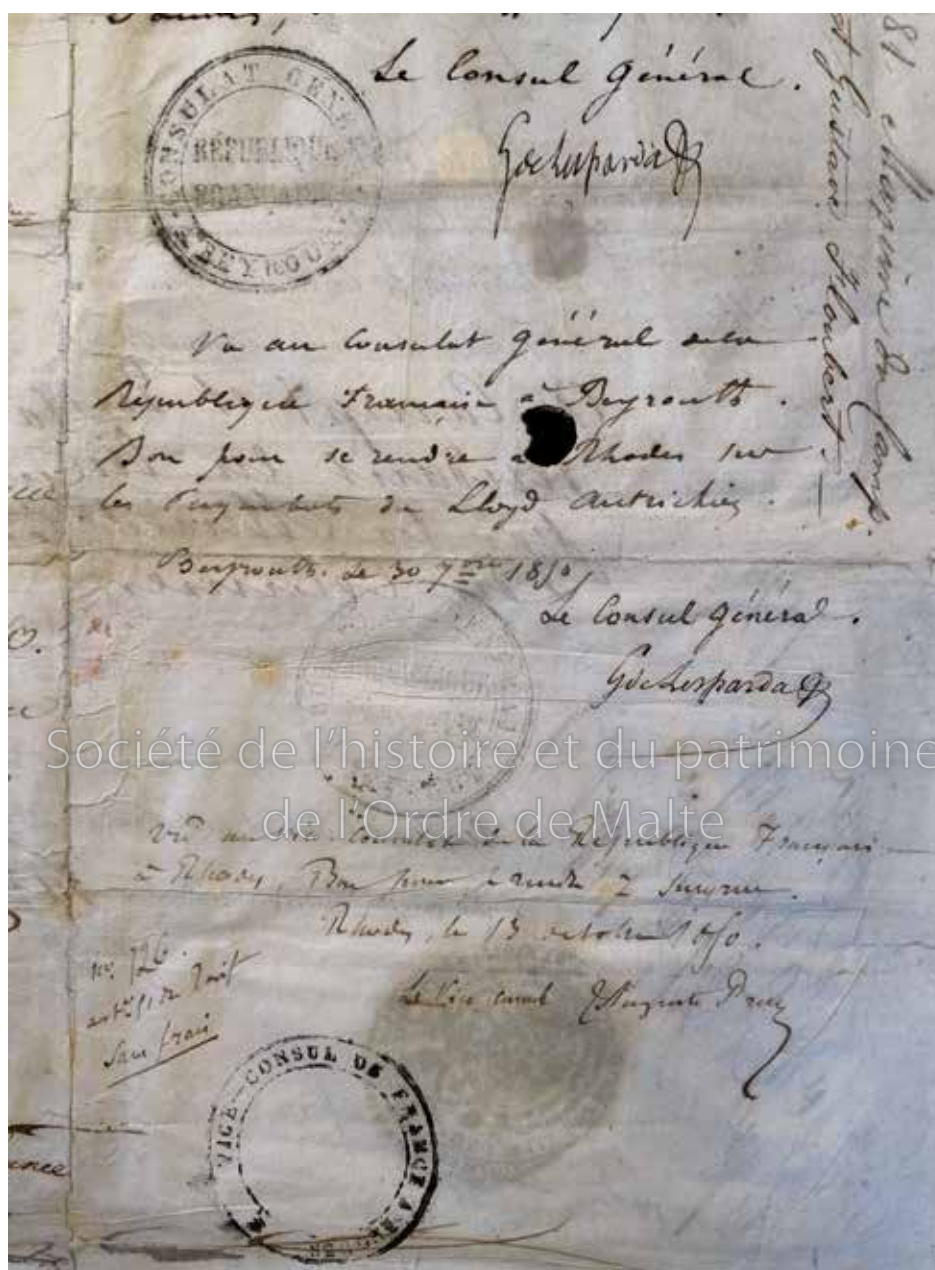 Le Consul Général.
CONSULAT GÉNÉ
RÉPUBLIQUE
FRANÇAISE
BEYROUT
Gde Lesparda
Vu au Consulat général de la
République Francaise à Beyrouth.
Bon pour se rendre à Rhodes sur
les Paquebots du Lloyd autrichien.
Beyrouth. Le 30 7bre 1850
Le Consul général.
Gde Lesparda
Société de l'histoire et du patrimoine
de l'Ordre de Malte
Vu au Vice-Consulat de la République Française
à Rhodes, Bon pour se rendre à Smyrne.
Rhodes, le 13 octobre 1850.
Le Vice consul
no. 726.
Sans frais
VICE-CONSUL DE FRANCE A RHODES
81 Maxime du Camp.
et Gustave Flaubert